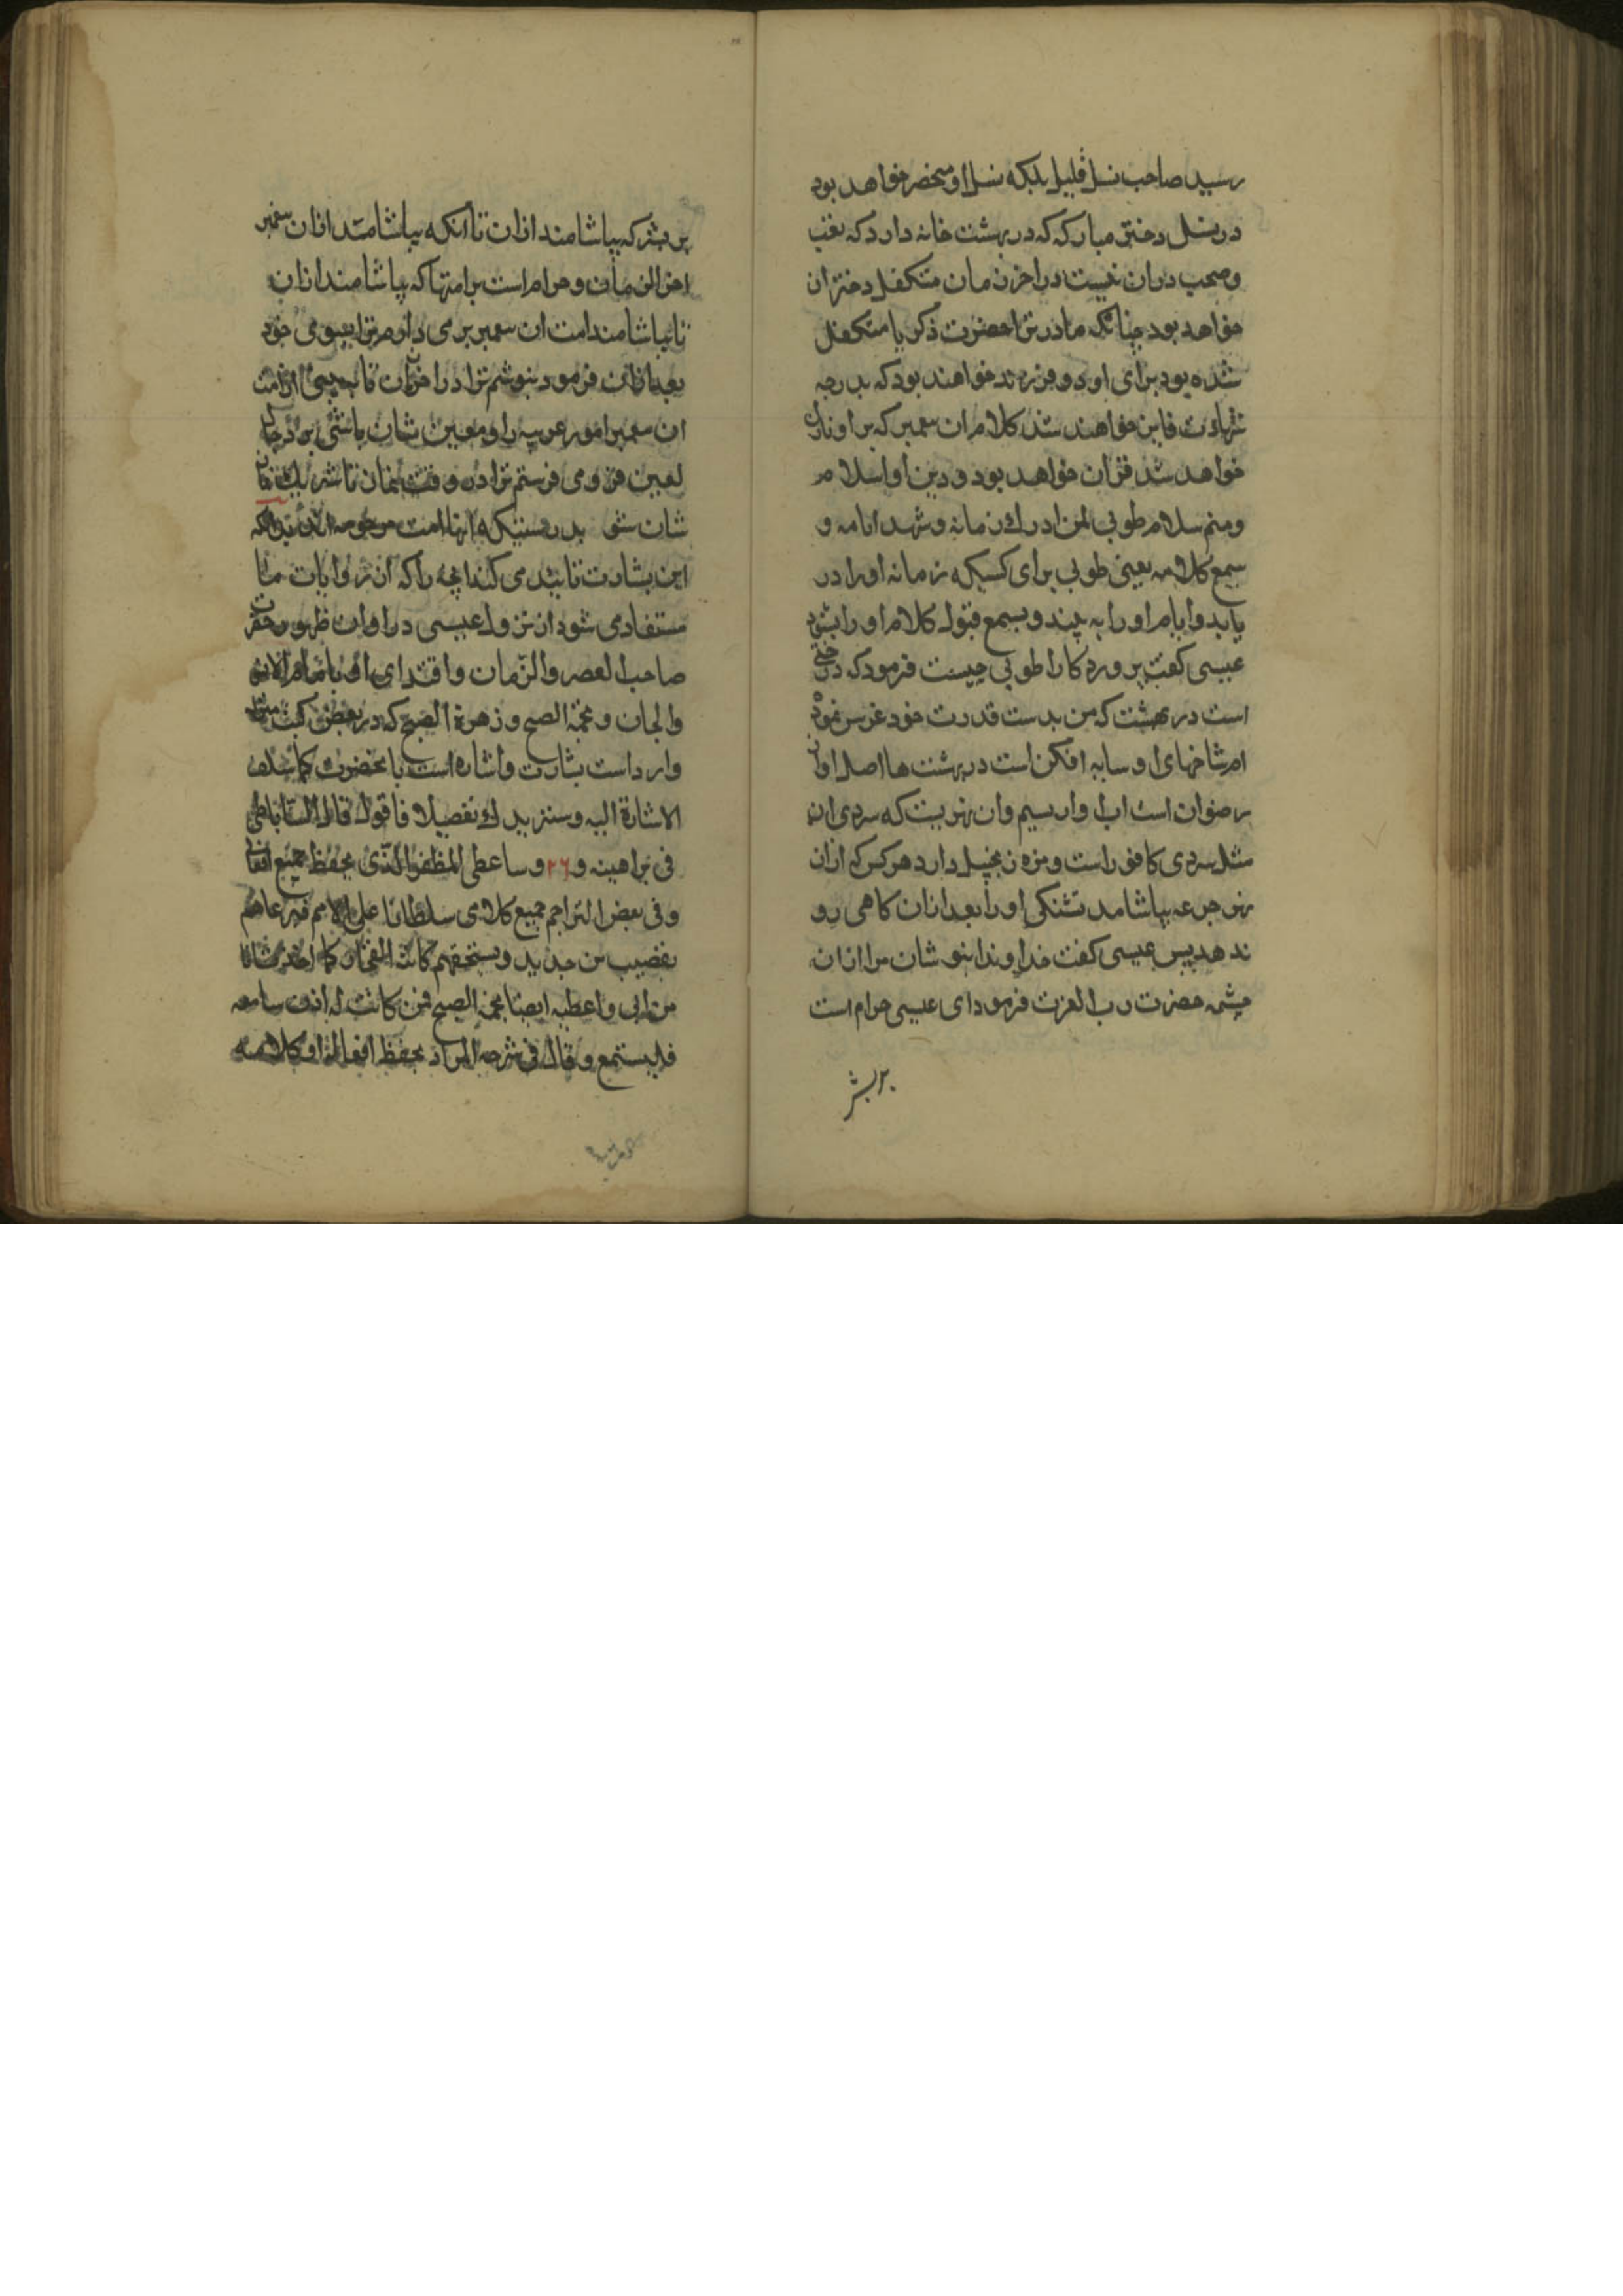 رسید صاحب نسل قلیل بلکه نسل او منحصر خواهد بود
در نسل دختر مبارکه که در بهشت خانه دارد که تعب
و صحب دران نیست در اخر زمان متکفل دختر ان
خواهد بود چنانکه مادر ترا حضرت ذکریا متکفل
شده بود برای او دو فرزند خواهند بود که بدرجه
شهادت فایز خواهند شد کلام ان پیغمبر که بر او نازل
خواهد شد قران خواهد بود و دین او اسلام
و منم سلام طوبی لمن ادرك زمانه و شهد ایامه و
سمع کلامه یعنی طوبی برای کسیکه زمانه او را در
یابد و ایام او را به بیند و بسمع قبول کلام او را بشنود
عیسی کفت پروردکارا طوبی چیست فرمود که درختی
است در بهشت که من بدست قدرت خود غرس نموده
ام شاخهای او سایه افکن است در بهشت ها اصل او از
رضوان است اب او از تسنیم وان نهریست که سردی ان
مثل سردی کافور است و مزه زنجبیل دارد هر کس که ازان
نهر جرعه بیاشامد تشنکی او را بعد ازان کاهی رو
ندهد پس عیسی کفت خداوندا بنوشان مرا ازان
چشمه حضرت رب العزت فرمود ای عیسی حرام است
بر بشر
بر بشر که بیاشامند ازان تا انکه بیاشامد ازان پیغمبر
اخر الزمان و حرام است بر امتها که بیاشامند ازان
تا بیاشامند امت ان پیغمبر بر می دارم ترا بسوی خود
بعد ازان فرمود بنوشم ترا در اخر زمان تا به بینی از امت
ان پیغمبر امور عجیبه را و معین شان باشی بر دجال
لعین فرو می فرستم ترا در وقت نماز تا شریك نماز
شان شوی بدرستیکه انها امت مرحومه اند بدانکه
این بشارت تایید می کند انچه را که از روایات ما
مستفاد می شود از نزول عیسی در اوان ظهور حضرت
صاحب العصر والزمان و اقتدای او با امام الانس
والجان و نجمة الصبح و زهرة الصبح که در بعض کتب
وارد است بشارت و اشاره است بانحضرت کما سلف
الاشارة الیه و سنزیدك تفصیلا فاقول قال الساباطی
فی براهینه و ٢٦ و ساعطی المظفر الذی یحفظ جمیع افعالی
و فی بعض التراجم جمیع کلامی سلطانا علی الامم فیرعاهم
بقضیب من حدید و یسحقهم کانیة الفخار کما اخذت انا
من ابی و اعطیه ایضا نجمة الصبح فمن کانت له اذن سامعه
فلیستمع و قال فی شرحه المراد بحفظ افعاله او کلامه